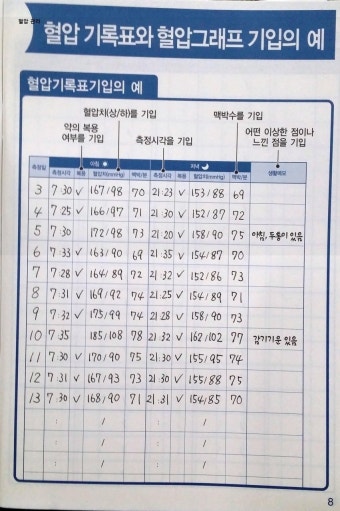 혈압 관리
혈압 기록표와 혈압그래프 기입의 예
혈압기록표기입의 예
혈압치(상/하)를 기입 맥박수를 기입
약의 복용 여부를 기입
측정시각을 기입
어떤 이상한 점이나 느낀 점을 기입
아침 저녁
측정일 측정시각 복용 혈압치(mmHg) 맥박/분 측정시각 복용 혈압치(mmHg) 맥박/분 생활메모
3 7:30 ✓ 167/98 70 21:23 ✓ 153/88 69
4 7:25 ✓ 166/97 71 21:30 ✓ 152/87 72
5 7:30 172/98 73 21:20 ✓ 158/90 75 아침, 두통이 있음
6 7:33 ✓ 163/90 69 21:35 ✓ 154/87 70
7 7:28 ✓ 164/89 72 21:32 ✓ 152/86 73
8 7:31 ✓ 169/92 74 21:25 ✓ 154/89 71
9 7:32 ✓ 175/99 74 21:28 ✓ 158/90 73
10 7:35 185/108 78 21:32 ✓ 162/102 77 감기기운 있음
11 7:30 ✓ 170/90 75 21:30 ✓ 155/95 74
12 7:31 ✓ 167/93 73 21:30 ✓ 155/88 75
13 7:30 ✓ 168/90 71 21:31 ✓ 154/85 70
: / : /
: / : /
: / : /
8